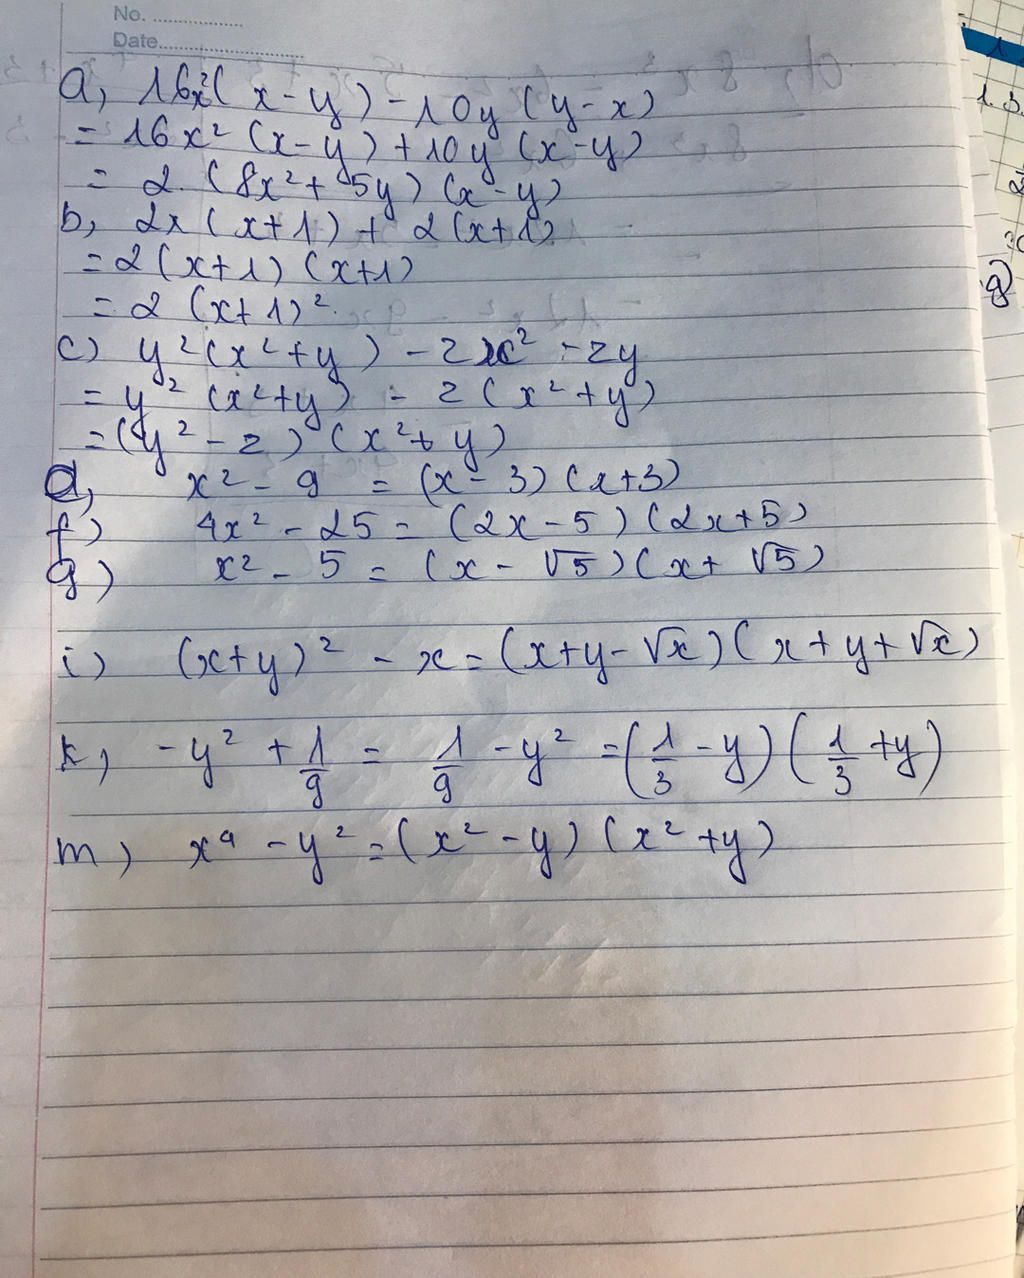 No. ..................
Date..............................
a, 16x²(x-y)-10y(y-x)
= 16x²(x-y)+10y(x-y)
= 2.(8x²+5y)(x-y)
b, 2x(x+1)+2(x+1)
= 2(x+1)(x+1)
= 2(x+1)²
c) y²(x²+y)-zx²-zy
= y²(x²+y)-z(x²+y)
= (y²-z)(x²+y)
d, x²-9 = (x-3)(x+3)
f) 4x²-25 = (2x-5)(2x+5)
g) x²-5 = (x-√5)(x+√5)
i) (x+y)²-x = (x+y-√x)(x+y+√x)
k, -y²+1/9 = 1/9-y² = (1/3-y)(1/3+y)
m) x⁴-y² = (x²-y)(x²+y)
1
1.3.
g)